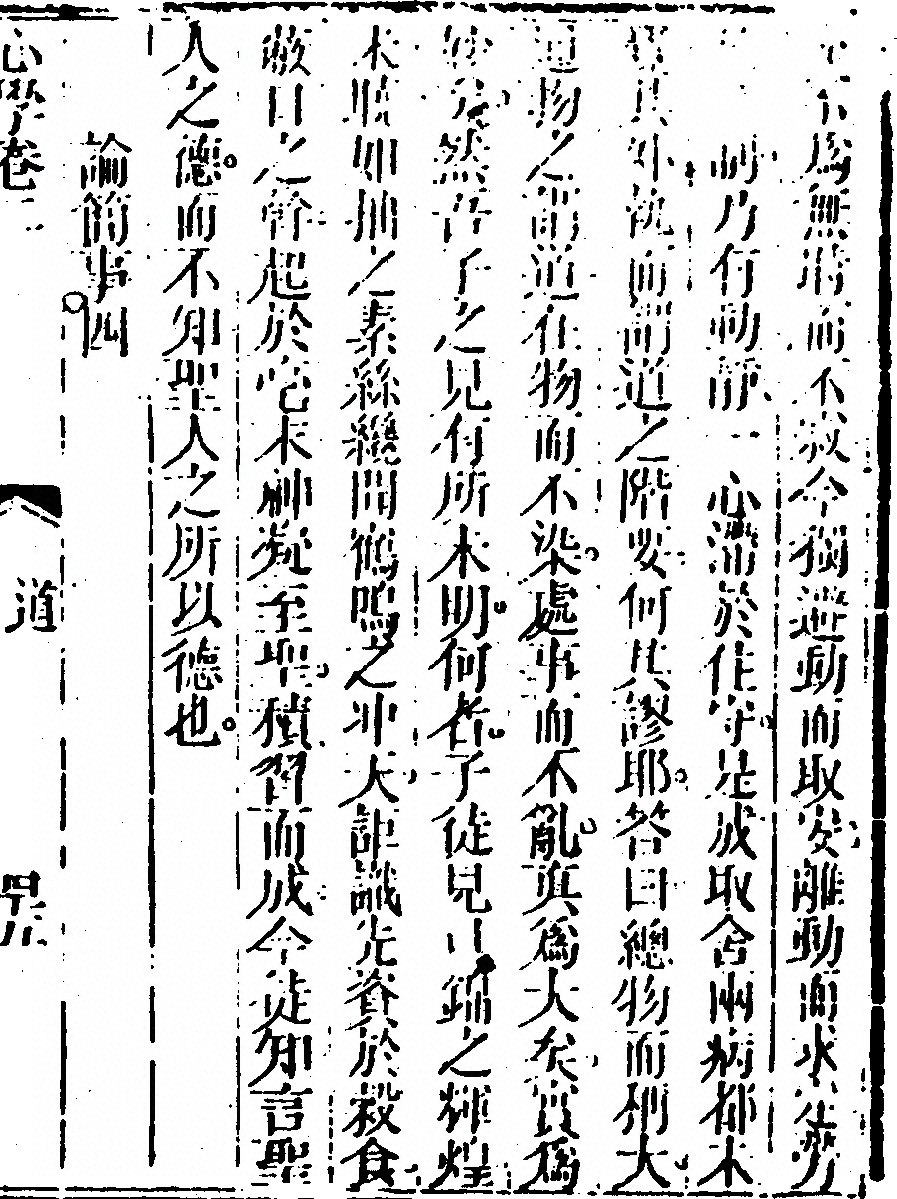 不為無滯而不寂今獨避動而取安離動而求
乃有動靜二心滯於住守是成取舍兩病都未
其外執而謂道之階妄何其謬耶答曰總物而稱大
通物之謂道在物而不染處事而不亂真為大矣實為
妙矣然吾子之見有所未明何者子徒見日踊之輝煌
未如抽之素絲纔聞鶴鳴之冲天詎識先資於縠食
蔽日之幹起於毫末神凝至聖積習而成今徒知言聖
人之德而不知聖人之所以德也
論簡事四
心學卷二
道